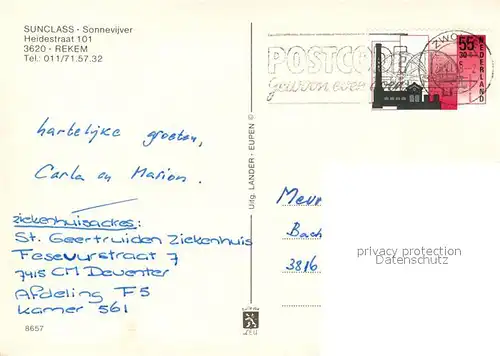 SUNCLASS - Sonnevijver
Heidestraat 101
3620 - REKEM
Tel.: 011/71.57.32
POSTCODE
gewoon even
ZWO
55
30
NEDERLAND
hartelijke groeten,
Carla en Marion.
ziekenhuisadres:
St. Geertruiden Ziekenhuis
Fesevurstraat 7
7415 CM Deventer
Afdeling F5
Kamer 561
8657
Uitg. LANDER - EUPEN ©
Mevr
Bach
3816
privacy protection
Datenschutz